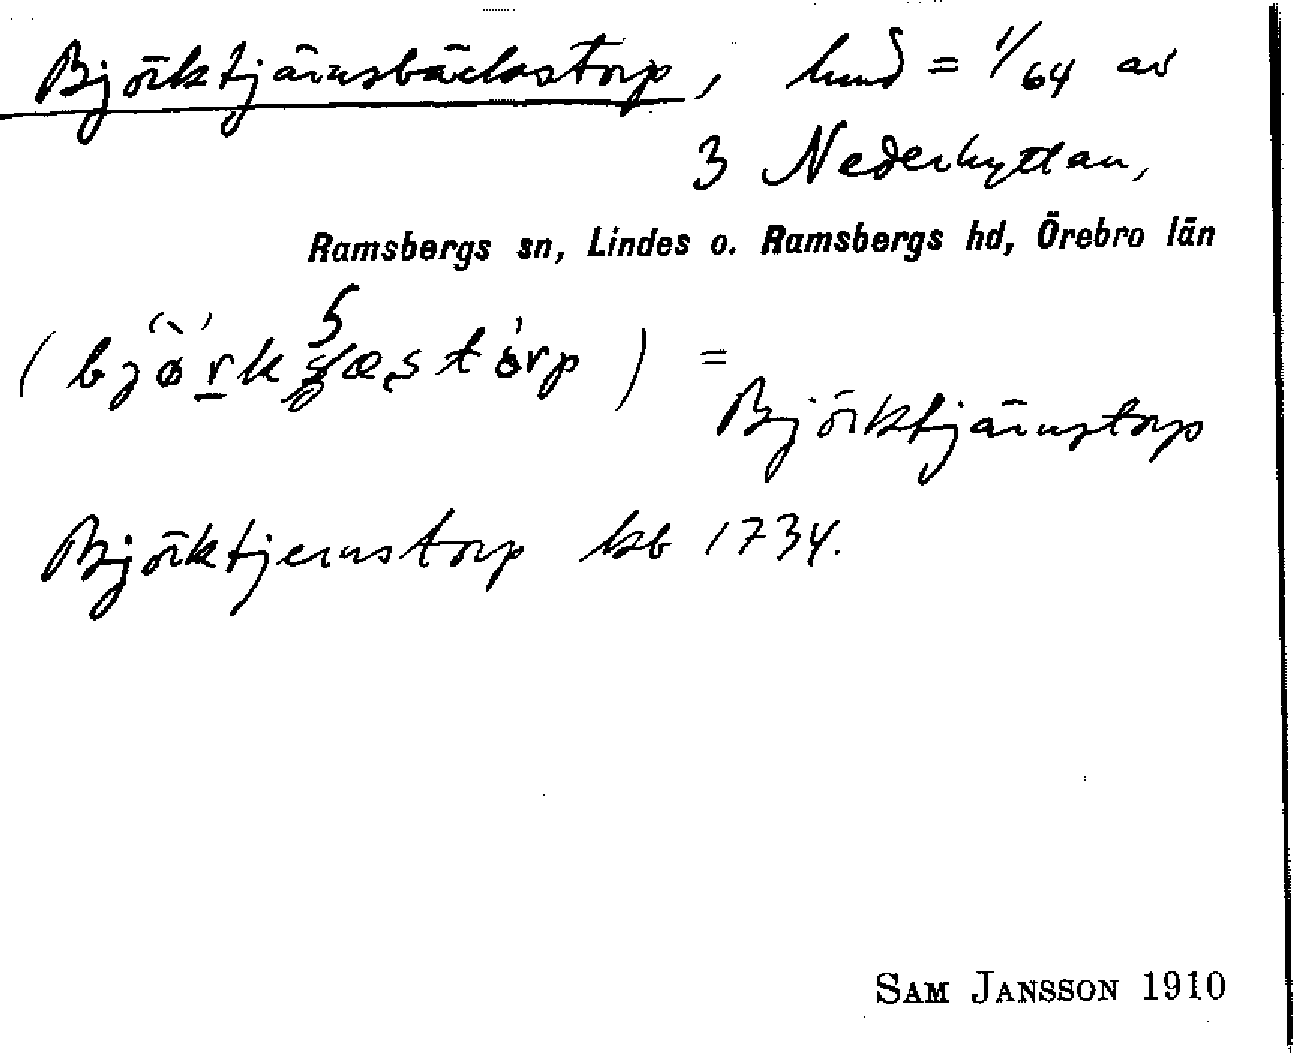 Björktjärnsbäckstorp, hmd = 1/64 av
3 Nederhyttan,
Ramsbergs sn, Lindes o. Ramsbergs hd, Örebro län
=
Björktjärnstorp
Björktjernstorp kb 1734.
SAM JANSSON 1910